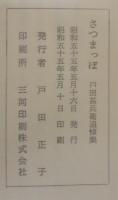 さつまっぽ 戸田甚兵衛追悼集
昭和五十五年五月十六日 発行
昭和五十五年五月十日 印刷
発行者 戸田正子
印刷所 三河印刷株式会社